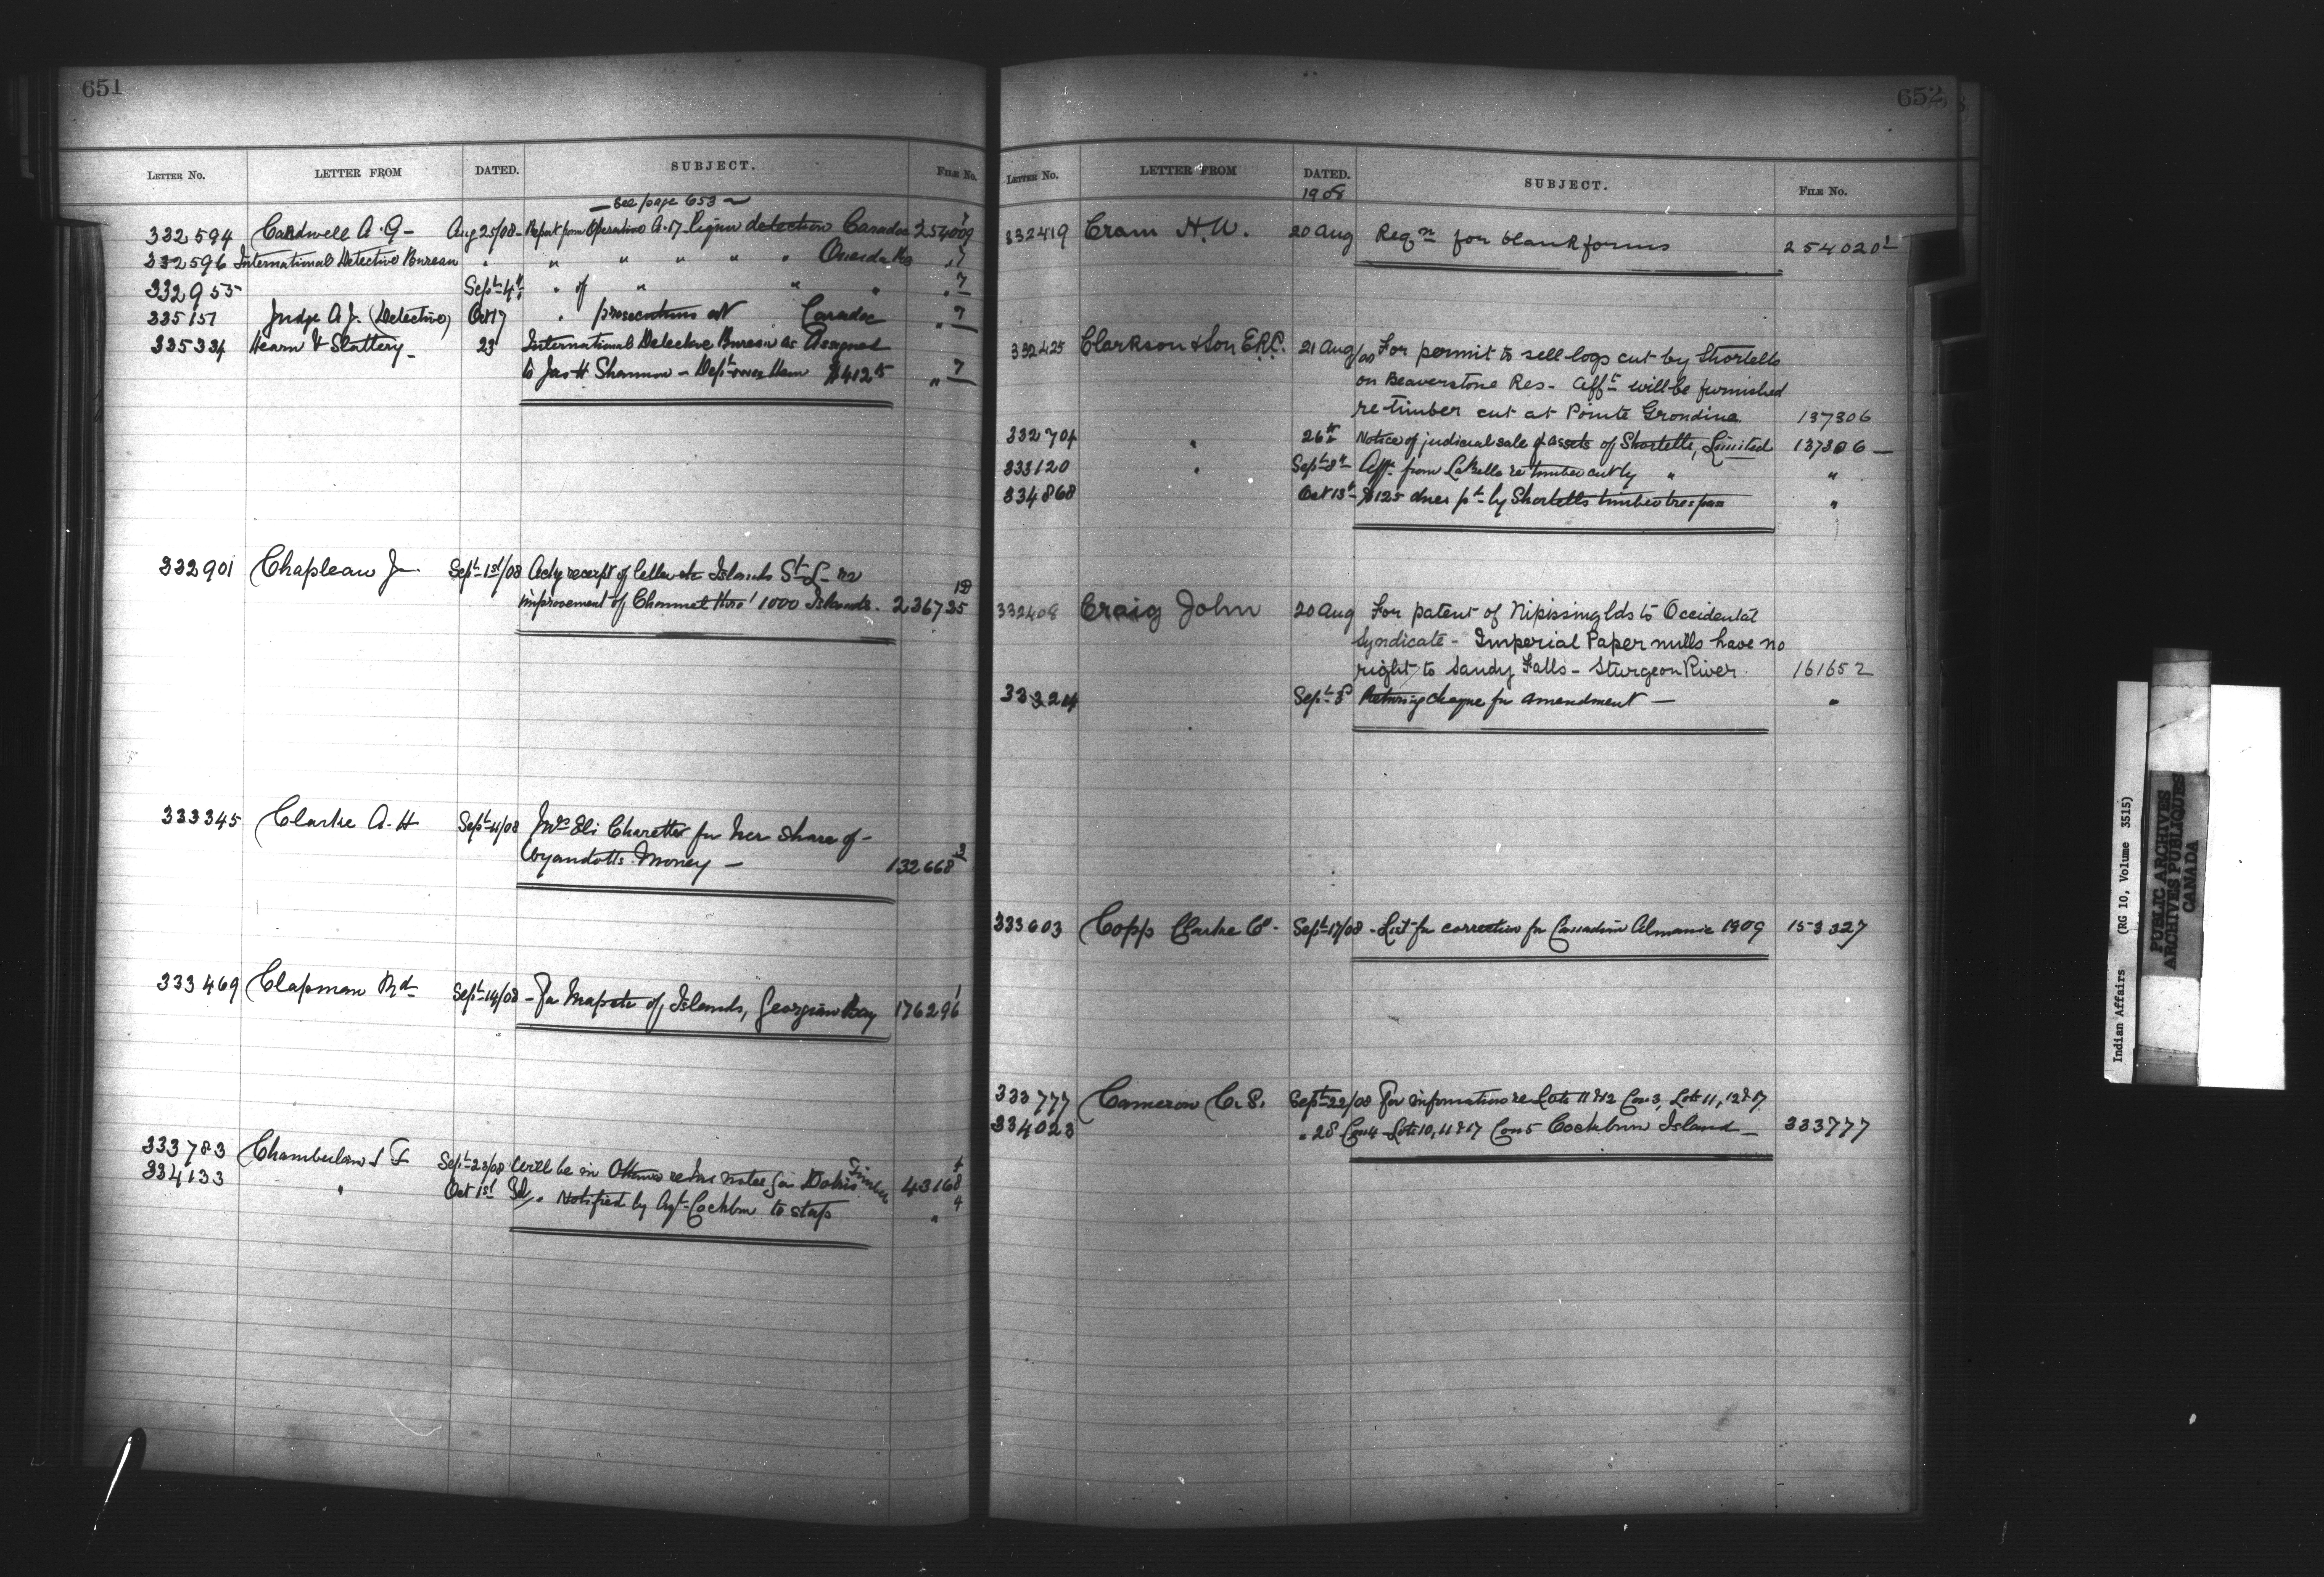 651
LETTER No. LETTER FROM DATED. SUBJECT. FILE No.
See page 653
332594 Cardwell A. G - Aug 25/08 - Report from Operative A. 17 Liquor detection Caradoc 254009 7
332596 International Detective Bureau " " " " " " Oneida Res " 7
332955 Sept 4th " of " " " " 7
335151 Judge A. J. (Detective) Oct 17 " prosecutions at Caradoc " 7
335334 Hearn & Slattery - 23 International Detective Bureau as Assigned
to Jas H Shannon - Dept owes them $412 " 7
332901 Chapleau J Sept 1st/08 Ackg receipt of letter Islands St. L - re
improvement of Channel thro' 1000 Islands. 236735
333345 Clarke A. H Sept 11/08 Mrs Eli Charette for her share of
Wyandotte Money - 132668
333469 Clapman Rd Sept 14/08 - For Map etc of Islands, Georgian Bay 176296 1
333783 Chamberlain S F Sept 23/08 Will be in Ottawa re his notes for Dokis Timber 43168
334133 " Oct 1st " Notified by Agt Cockburn to stop "
652
LETTER No. LETTER FROM DATED. SUBJECT. FILE No.
1908
332419 Cram H. W. 20 Aug Reqn for blank forms 254020 1
332425 Clarkson & Son E.R.C. 21 Aug/08 For permit to sell logs cut by Shortells
on Beaverstone Res - Afft will be furnished
re timber cut at Pointe Grondine 137306
332704 " 26th Notice of judicial sale of assets of Shortells, Limited 137306 -
333120 " Sept 8th Afft from LaBelle re timber cut by " "
334868 Oct 13th $125 dues pd by Shortells timber trespass "
332408 Craig John 20 Aug For patent of Nipissing lds to Occidental
Syndicate - Imperial Paper mills have no
right to Sandy Falls - Sturgeon River. 161652
333224 Sept 8 Returning cheque for amendment - "
333603 Copp Clarke Co - Sept 17/08 - List for correction for Canadian Almanac 1909 153327
333777 Cameron C. S. Sept 22/08 For information re Lots 11 & 12 Con 3, Lots 11, 12 & 17
334023 " 28 Con 4 - Lots 10, 11 & 17 Con 5 Cockburn Island - 333777
Indian Affairs (RG 10, Volume 3515)
PUBLIC ARCHIVES
ARCHIVES PUBLIQUES
CANADA